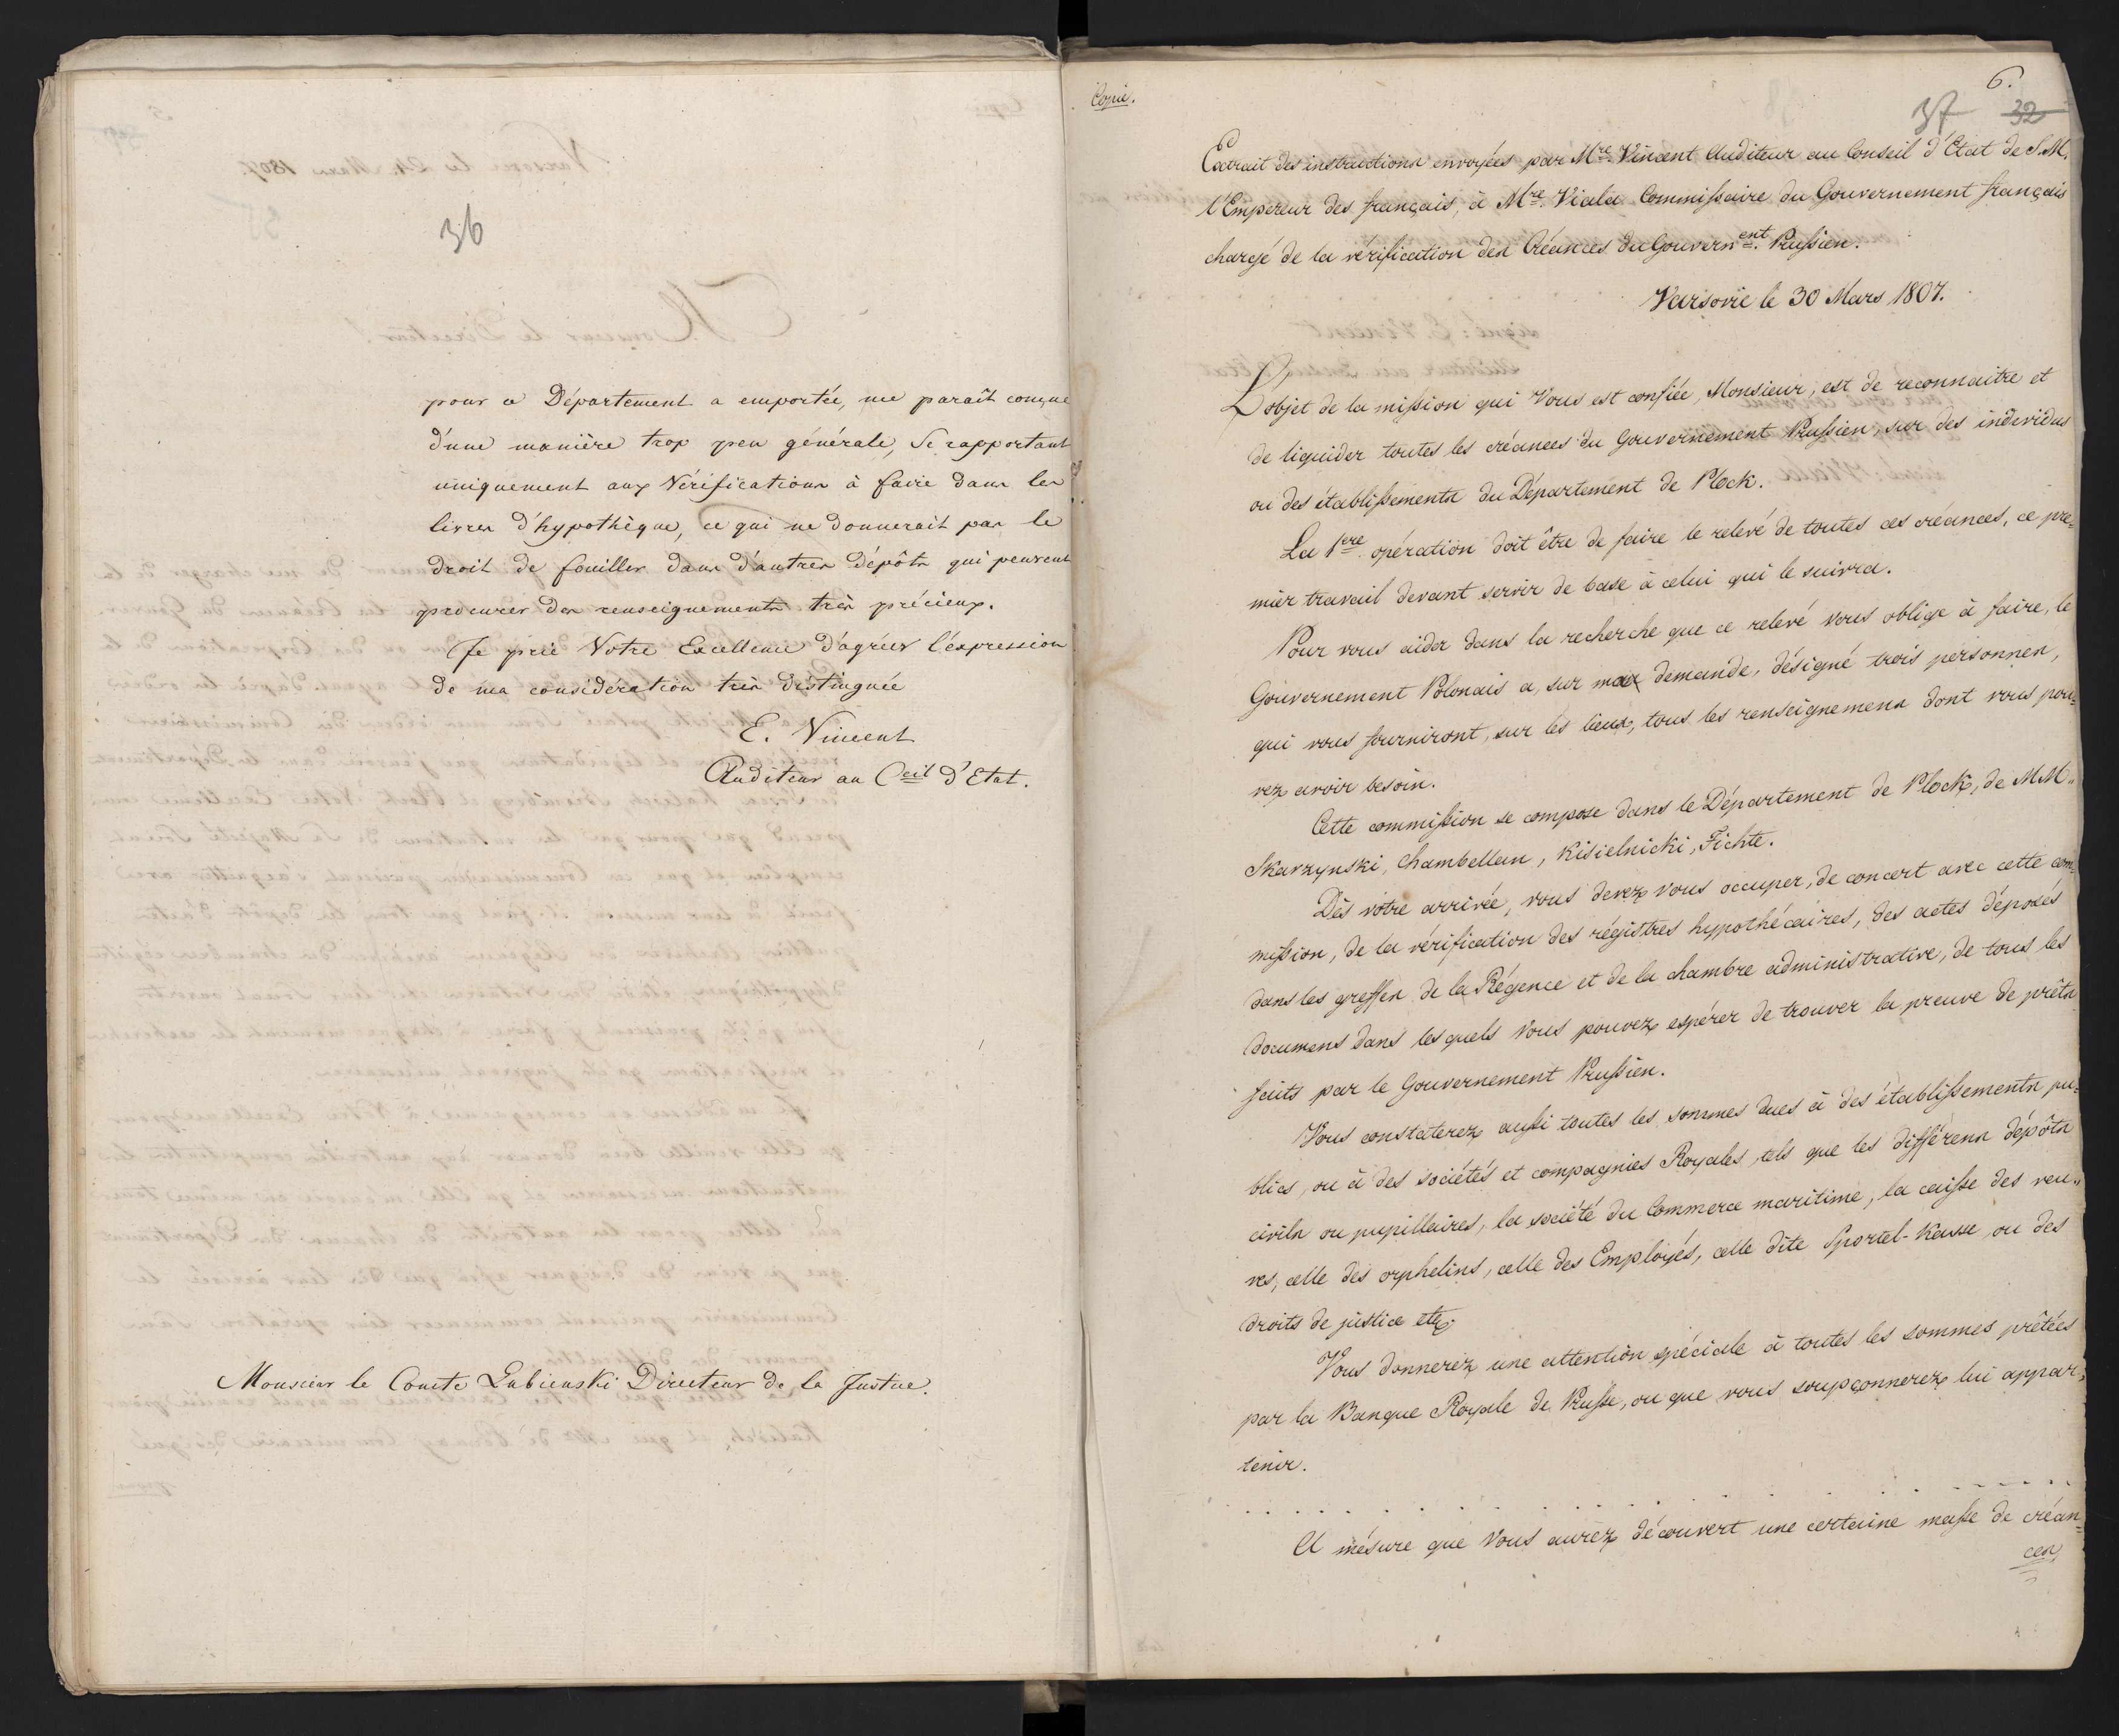 36
pour ce Département a emportée, me paraît conçue
d'une manière trop peu générale, se rapportant
uniquement aux Vérifications à faire dans les
livres d'hypothèque, ce qui ne donnerait pas le
droit de fouiller dans d'autres dépôts qui peuvent
procurer des renseignements très précieux.
Je prie Votre Excellence d'agréer l'expression
de ma considération très distinguée
E. Vincent
Auditeur au Ceil d'Etat.
Monsieur le Comte Lubienski Directeur de la Justice.
Copie.
6.
37 32
Extrait des instructions envoyées par Mre Vincent Auditeur au Conseil d'Etat de S.M.
l'Empereur des français, à Mre Viala Commissaire du Gouvernement français
chargé de la vérification des Créances du Gouvernent Prussien.
Varsovie le 30 Mars 1807.
L'objet de la mission qui Vous est confiée, Monsieur, est de reconnaitre et
de liquider toutes les créances du Gouvernement Prussien, sur des individus
ou des établissements du Département de Plock.
La 1ere opération doit être de faire le relevé de toutes ces créances, ce pre=
mier travail devant servir de base à celui qui le suivra.
Pour vous aider dans la recherche que ce relevé vous oblige à faire, le
Gouvernement Polonais a, sur ma demande, désigné trois personnes,
qui vous fourniront, sur les lieux, tous les renseignemens dont vous pou=
rez avoir besoin.
Cette commission se compose dans le Département de Plock, de MM.
Skarzynski, Chambellan, Kisielnicki, Fichte.
Dès votre arrivée, vous devez vous occuper, de concert avec cette com=
mission, de la vérification des régistres hypothécaires, des actes déposés
dans les greffes de la Régence et de la chambre administrative, de tous les
documens dans lesquels vous pouvez espérer de trouver la preuve de prêts
faits par le Gouvernement Prussien.
Vous constaterez aussi toutes les sommes dues à des établissements pu=
blics, ou à des sociétés et compagnies Royales, tels que les différens dépôts
civils ou pupillaires, la société du Commerce maritime, la caisse des veu=
ves, celle des orphelins, celle des Employés, celle dite Sportel-Kasse, ou des
droits de justice etc.
Vous donnerez une attention spéciale à toutes les sommes prêtées
par la Banque Royale de Prusse, ou que vous soupçonnerez lui appar=
tenir.
. . . . . . . . . . . . . . . . . . . .
A mésure que Vous aurez découvert une certaine masse de créan=
ces,